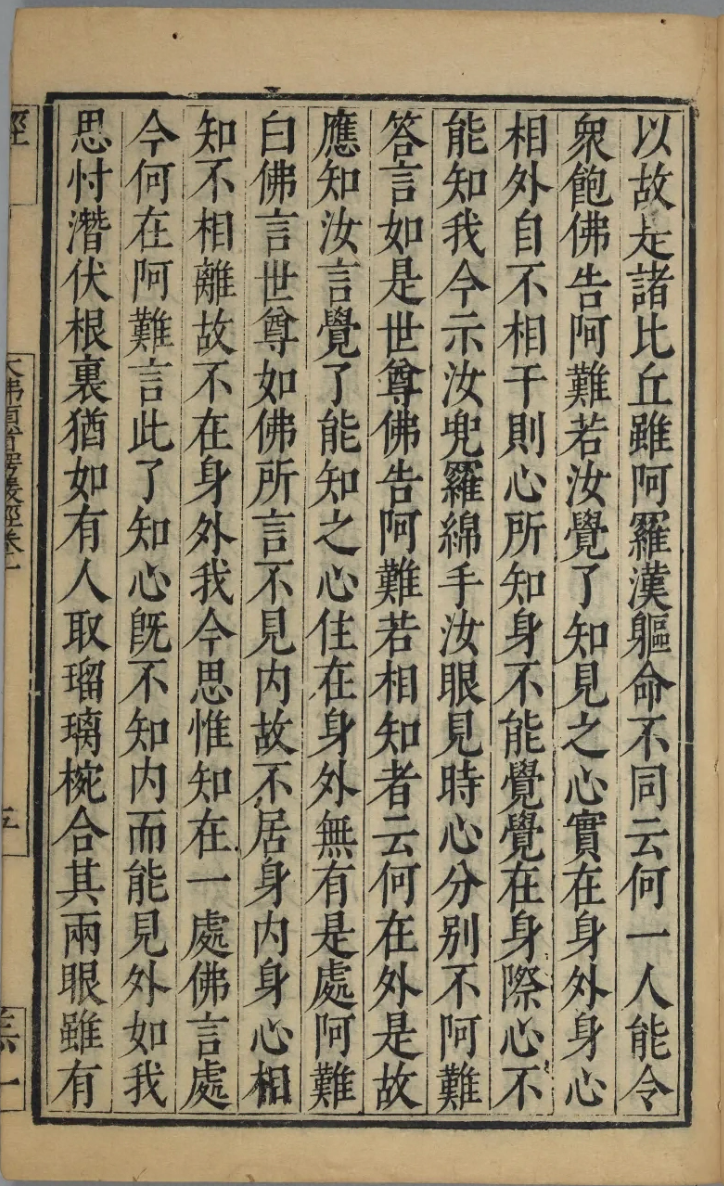 以故是諸比丘雖阿羅漢軀命不同云何一人能令
衆飽佛告阿難若汝覺了知見之心實在身外身心
相外自不相干則心所知身不能覺覺在身際心不
能知我今示汝兜羅綿手汝眼見時心分别不阿難
答言如是世尊佛告阿難若相知者云何在外是故
應知汝言覺了能知之心住在身外無有是處阿難
白佛言世尊如佛所言不見内故不居身内身心相
知不相離故不在身外我今思惟知在一處佛言處
今何在阿難言此了知心旣不知内而能見外如我
思忖潛伏根裏猶如有人取瑠璃椀合其兩眼雖有
經
大佛頂首楞嚴經卷一